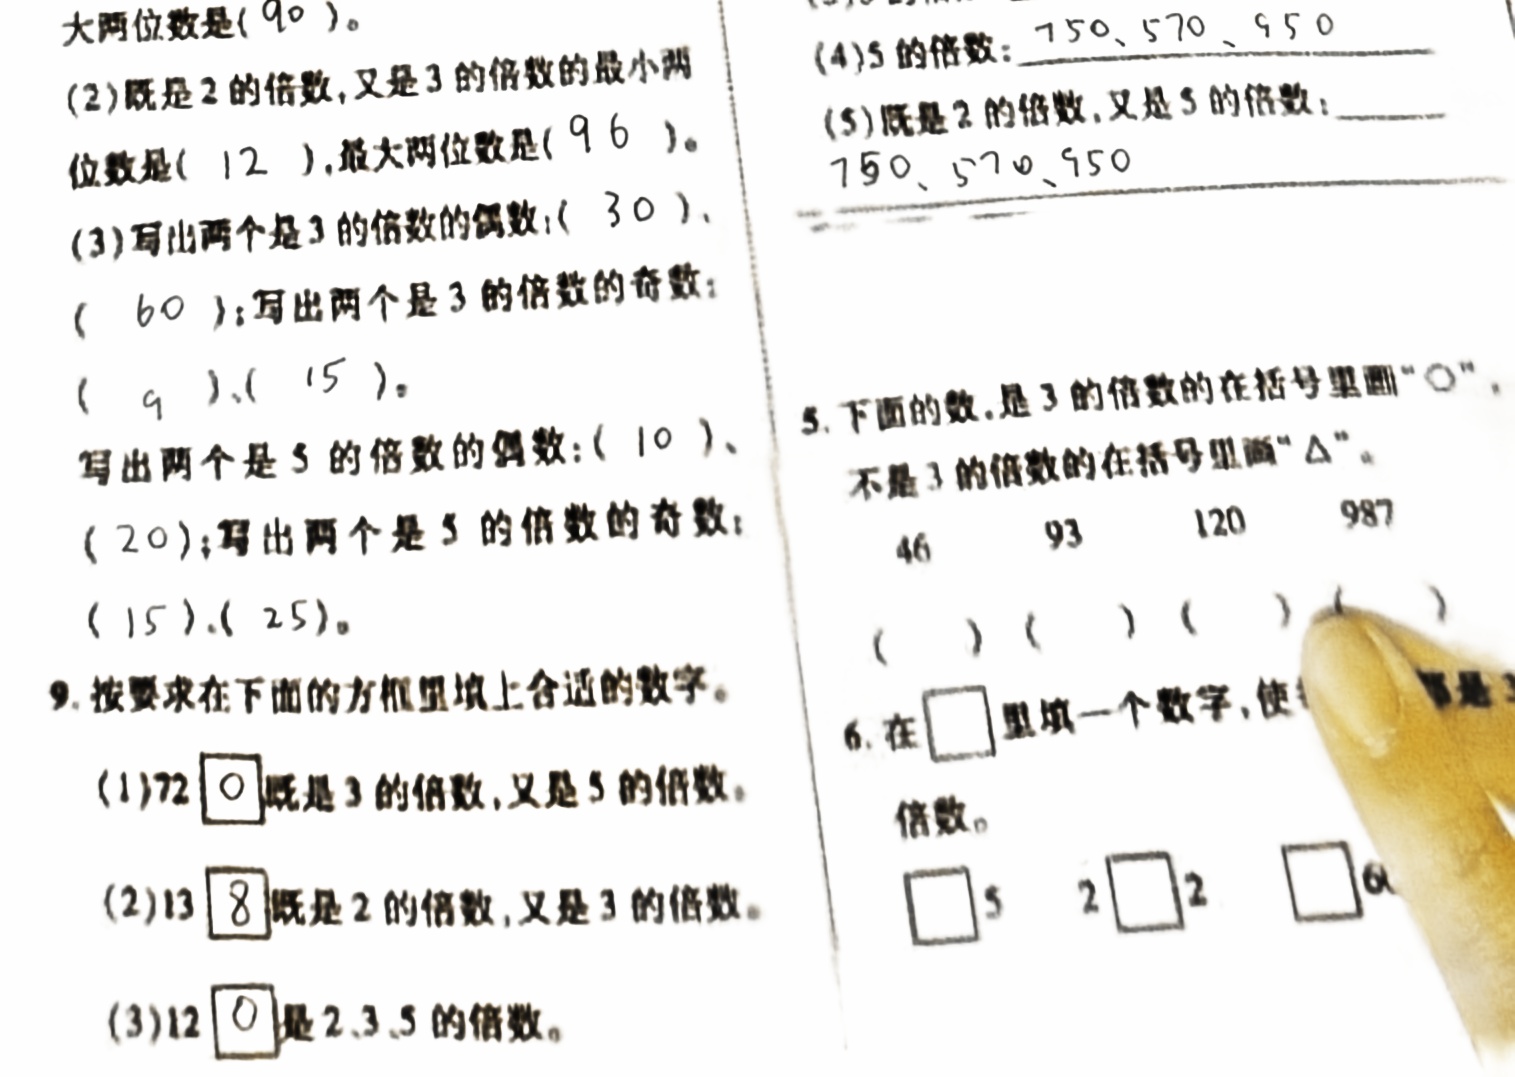 大两位数是(90)。
(2)既是2的倍数,又是3的倍数的最小两
位数是(12),最大两位数是(96)。
(3)写出两个是3的倍数的偶数:(30)、
(60);写出两个是3的倍数的奇数:
(9)、(15)。
写出两个是5的倍数的偶数:(10)、
(20);写出两个是5的倍数的奇数:
(15)、(25)。
9. 按要求在下面的方框里填上合适的数字。
(1)72 0 既是3的倍数,又是5的倍数。
(2)13 8 既是2的倍数,又是3的倍数。
(3)12 0 是2、3、5的倍数。
(4)5的倍数: 750、570、950
(5)既是2的倍数,又是5的倍数:
750、570、950
5. 下面的数,是3的倍数的在括号里画“○”,
不是3的倍数的在括号里画“△”。
46 93 120 987
( ) ( ) ( ) ( )
6. 在□里填一个数字,使 都是3
倍数。
□5 2□2 □6